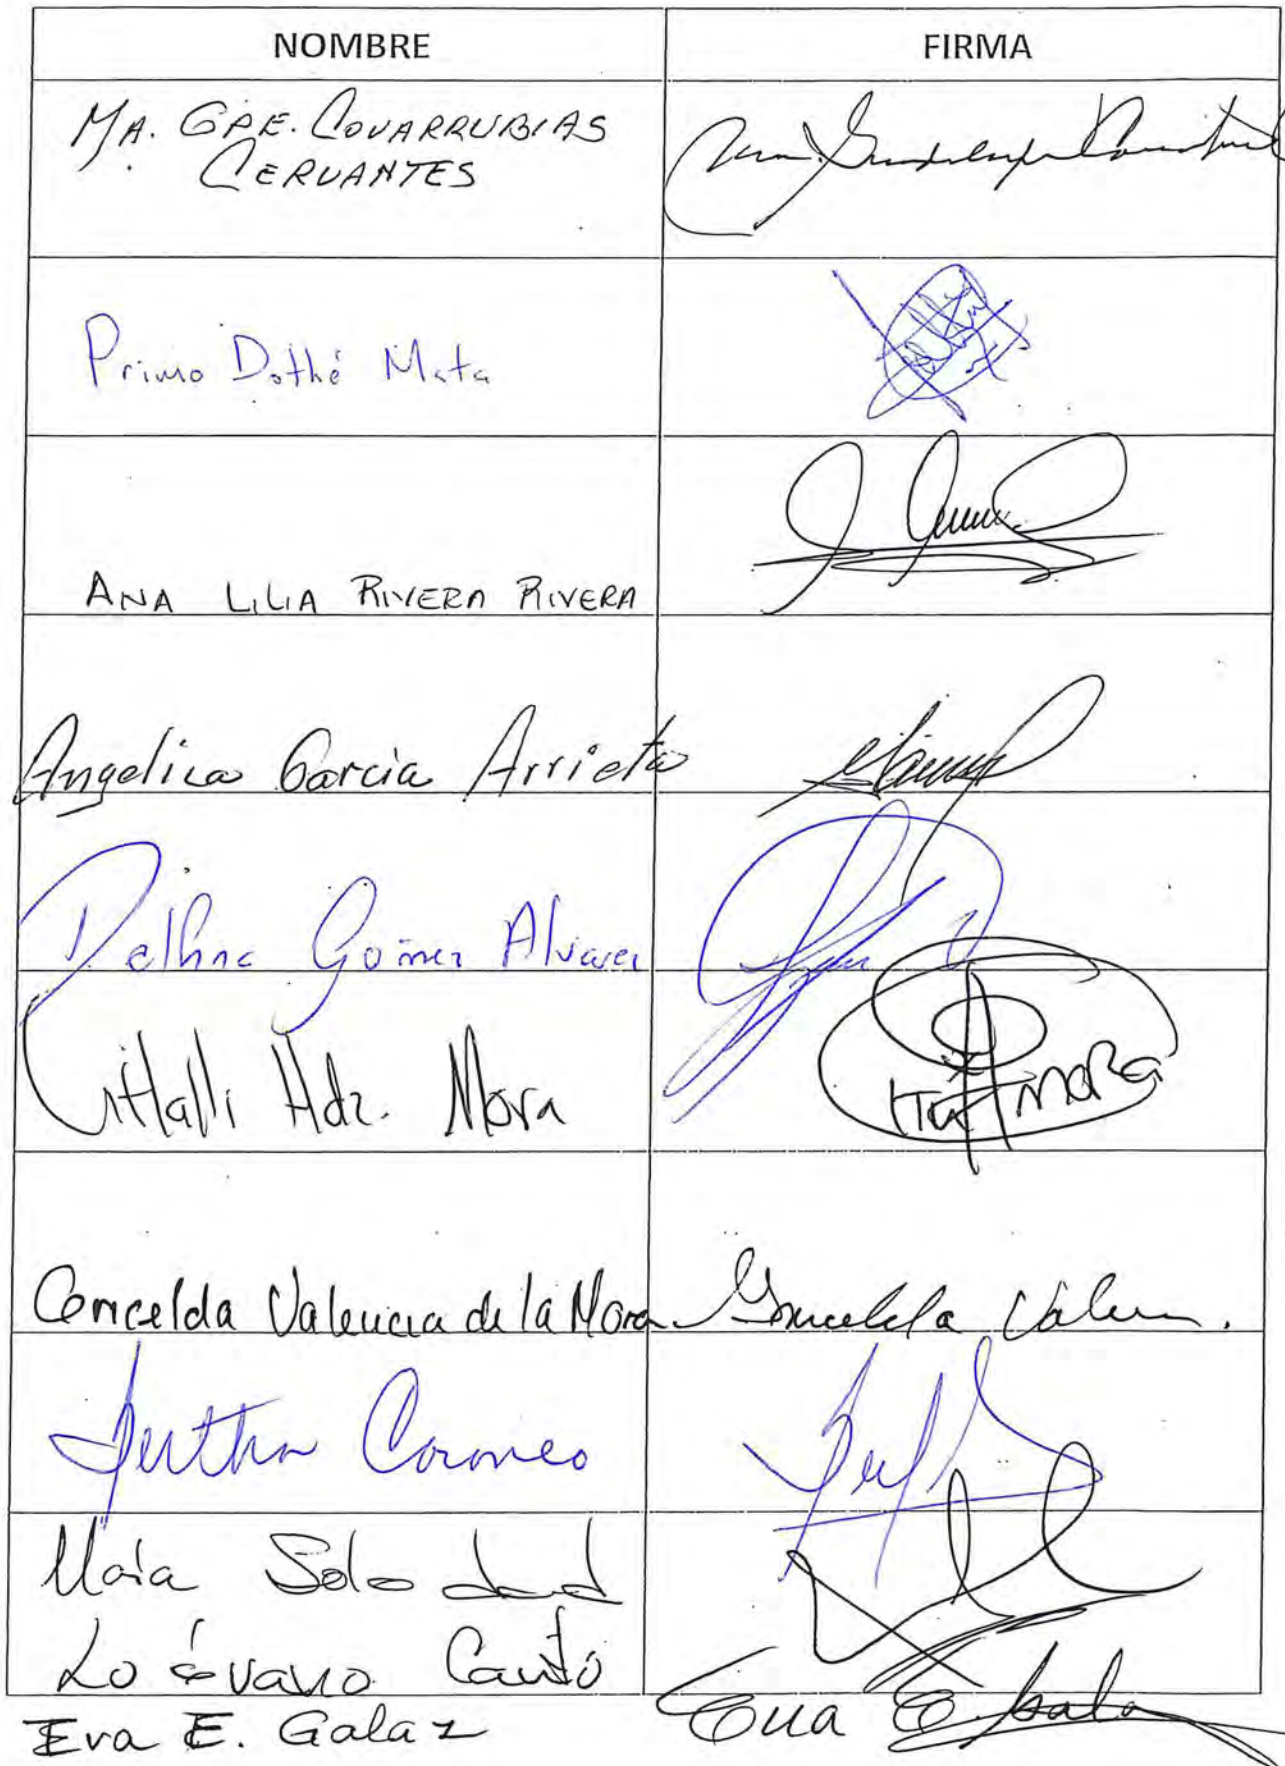 NOMBRE FIRMA
MA. GPE. COVARRUBIAS
CERVANTES
Primo Dothé Mata
ANA LILIA RIVERA RIVERA
Angelica García Arrieta
Delfina Gómez Alvarez
Citlalli Hdz. Mora
MORA
Gricelda Valencia de la Mora
Gricelda Valen.
Bertha Caraveo
María Soledad
Loévano Cantú
Eva E. Galaz
Eva E. Galaz